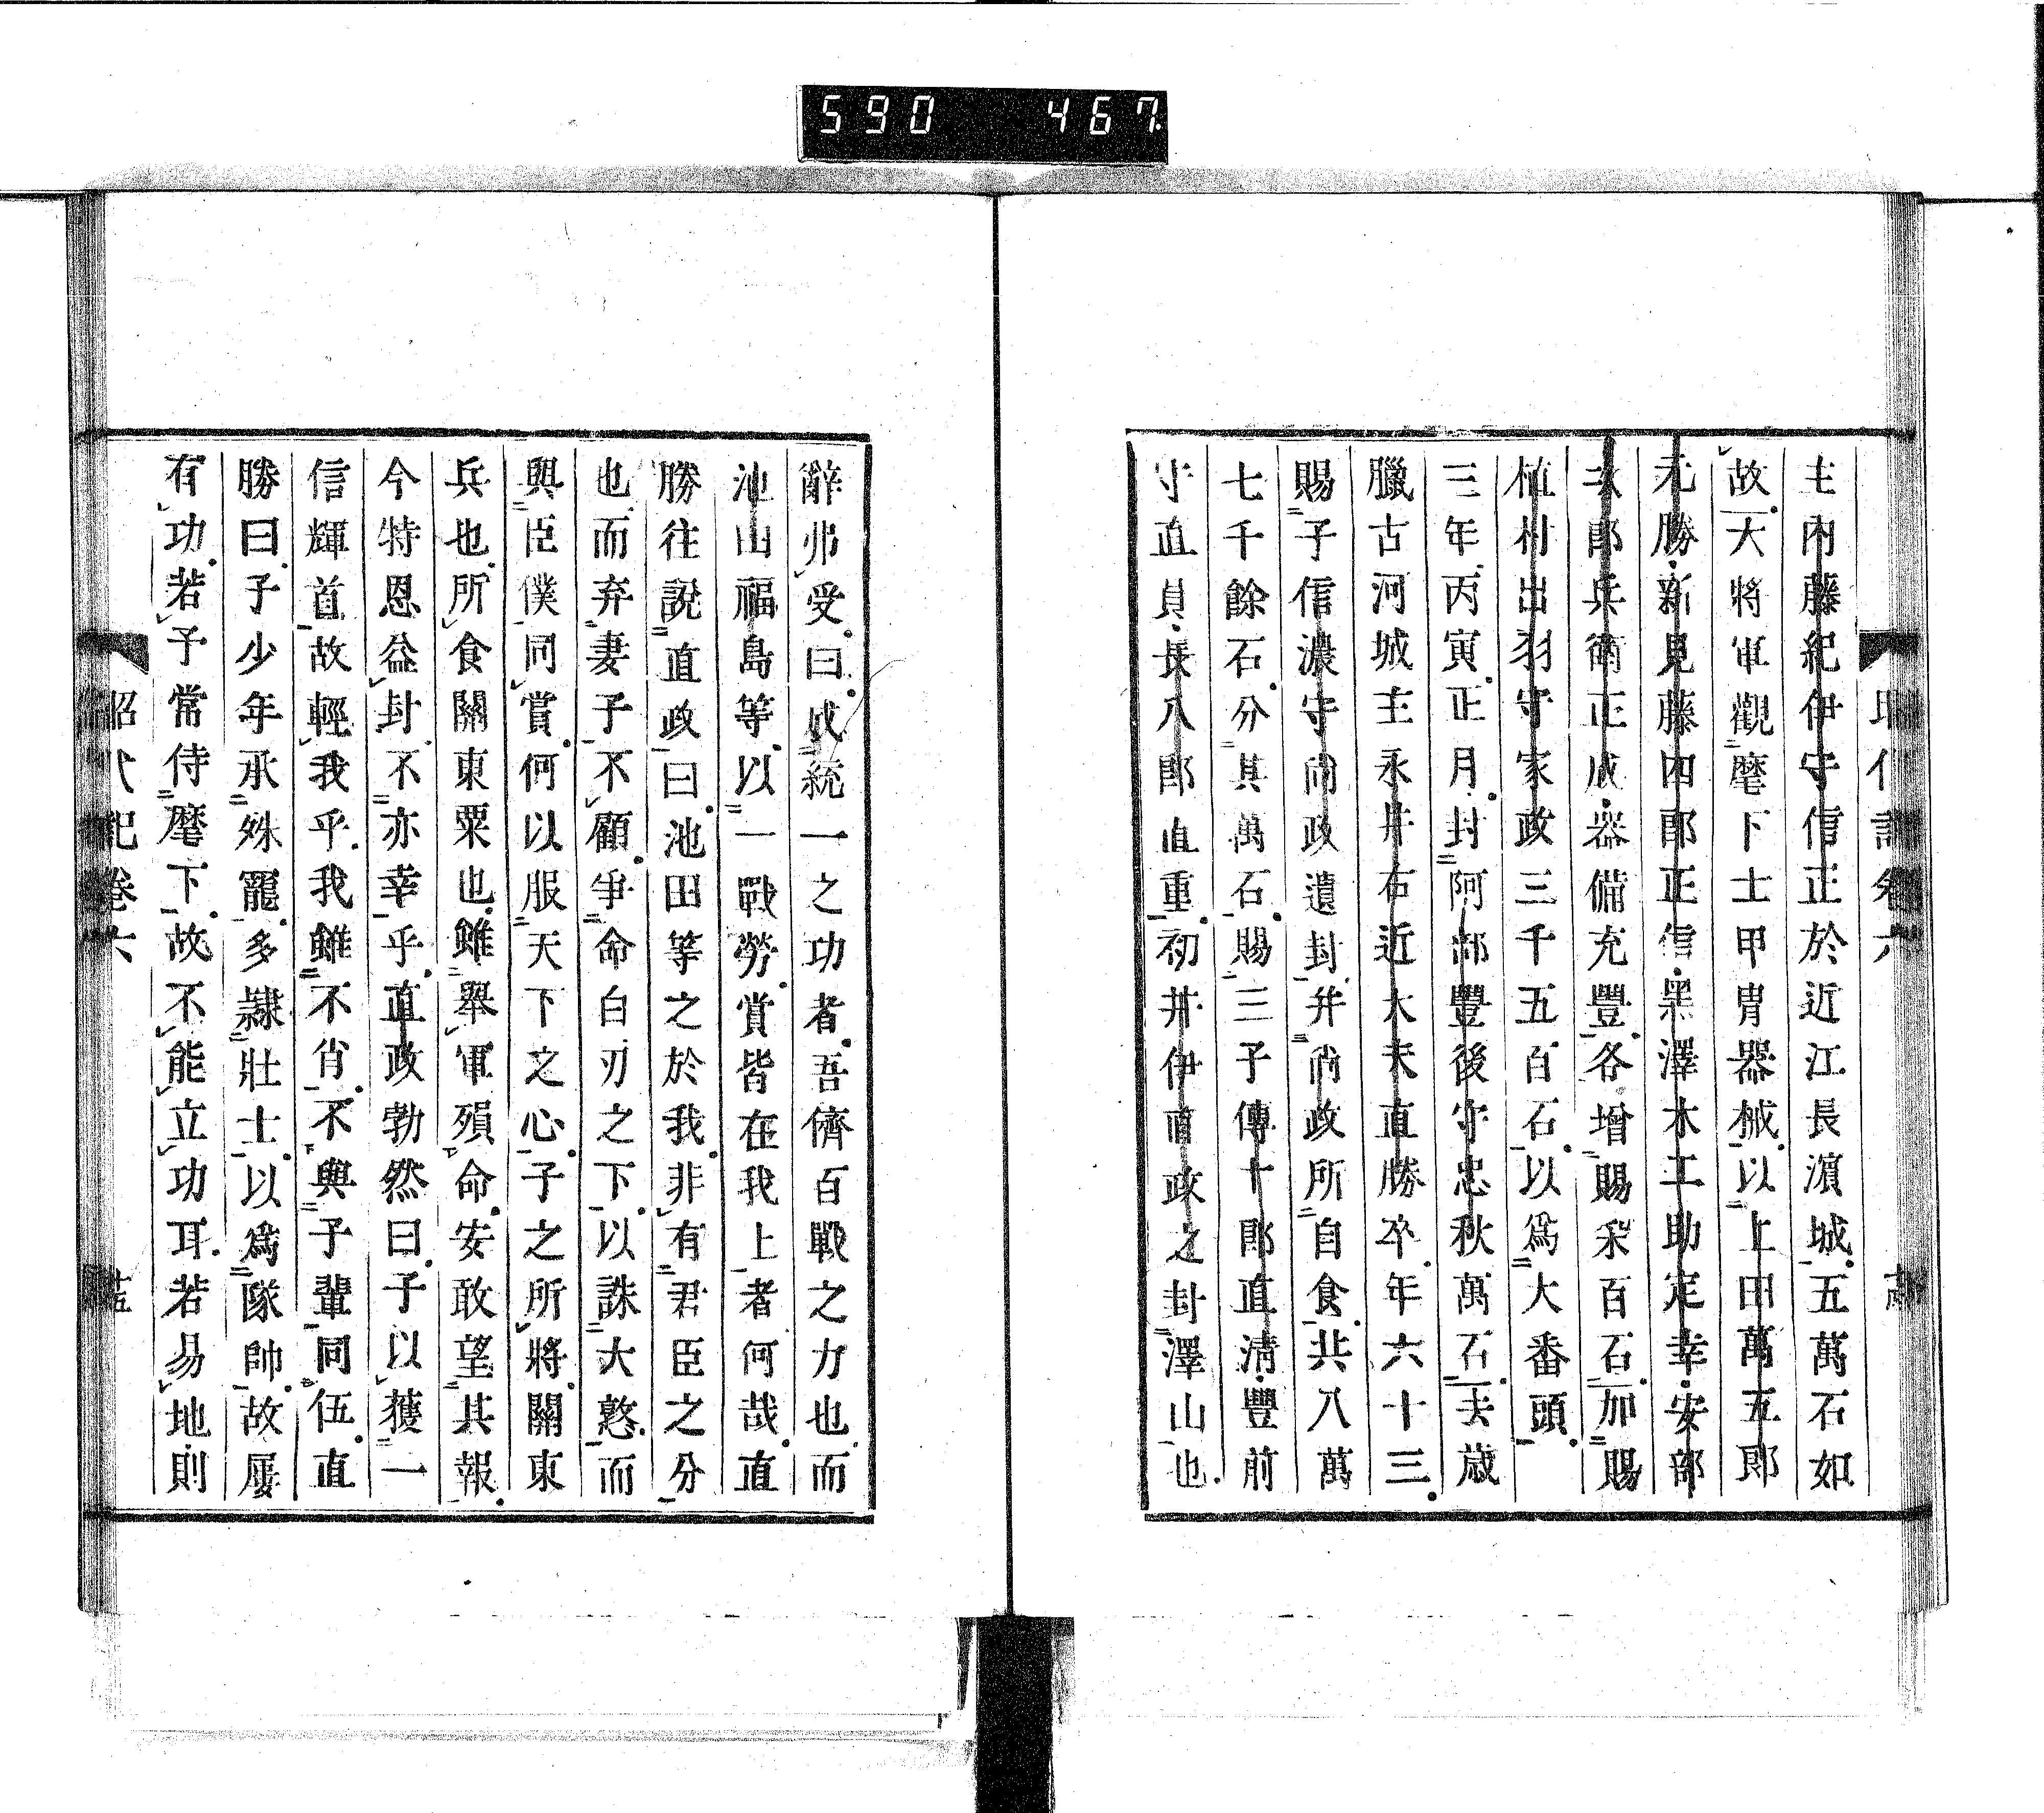 590 467
主內藤紀伊守信正於近江長濵城五萬石如
故大將軍觀麾下士甲冑器械以上田萬五郎
元勝新見藤四郎正信黑澤木工助定幸安部
次郎兵衞正成器備充豐各增賜釆百石加賜
植村出羽守家政三千五百石以爲大番頭
三年丙寅正月封阿部豐後守忠秋萬石去歳
臘古河城主永井右近大夫直勝卒年六十三
賜子信濃守尙政遺封并尙政所自食共八萬
七千餘石分其萬石賜三子傳十郎直淸豐前
守直員長八郎直重初井伊直政之封澤山也
昭代記卷六
辭弗受曰成統一之功者吾儕百戰之力也而
池山福島等以一戰勞賞皆在我上者何哉直
勝往說直政曰池田等之於我非有君臣之分
也而弃妻子不顧爭命白刃之下以誅大憝而
與臣僕同賞何以服天下之心子之所將關東
兵也所食關東粟也雖舉軍殞命安敢望其報
今特恩益封不亦幸乎直政勃然曰子以獲一
信輝首故輕我乎我雖不肖不與子輩同伍直
勝曰子少年承殊寵多隷壯士以爲隊帥故屢
有功若予常侍麾下故不能立功耳若易地則
昭代記卷六